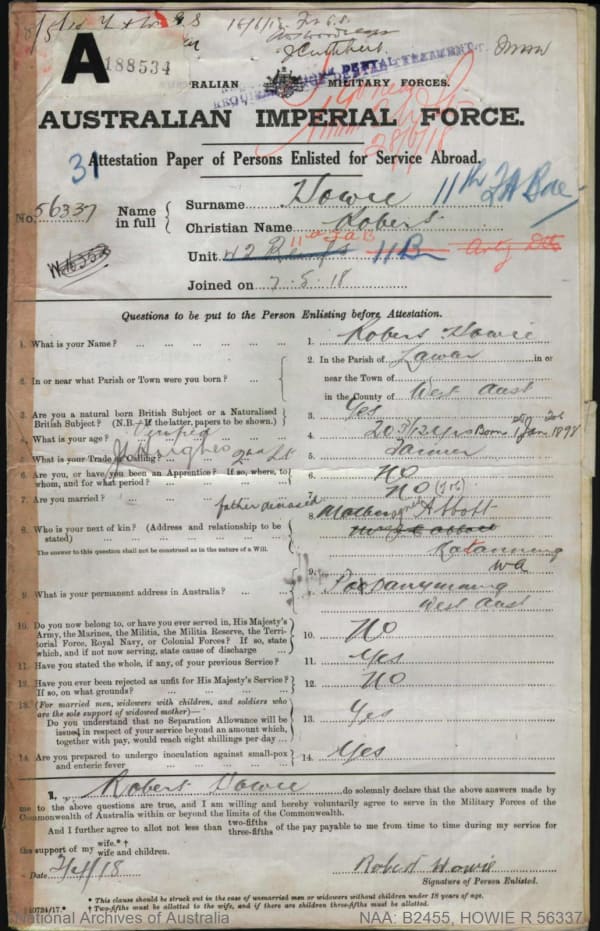 A
188534
AUSTRALIAN MILITARY FORCES.
REQUIRES DENTAL TREATMENT
AUSTRALIAN IMPERIAL FORCE.
28/6/18
31
Attestation Paper of Persons Enlisted for Service Abroad.
No. 56337
Name in full
Surname Howie
11th FA Bde
Christian Name Robert
Unit
Joined on 7.5.18
Questions to be put to the Person Enlisting before Attestation.
1. What is your Name? ... 1. Robert Howie
2. In or near what Parish or Town were you born? ... 2. In the Parish of in or
near the Town of
in the County of West Aust
3. Are you a natural born British Subject or a Naturalised
British Subject? (N.B.—If the latter, papers to be shown.) 3. Yes
4. What is your age? 4. 20 3/12 yrs Born Jan 1898
5. What is your Trade or Calling? 5.
6. Are you, or have you been an Apprentice? If so, where, to
whom, and for what period? 6. NO
7. Are you married? 7. NO
father deceased
8. Who is your next of kin? (Address and relationship to be
stated) 8. Mother Abbott
Katanning
WA
The answer to this question shall not be construed as in the nature of a Will.
9. What is your permanent address in Australia? 9.
West Aust
10. Do you now belong to, or have you ever served in, His Majesty's
Army, the Marines, the Militia, the Militia Reserve, the Terri-
torial Force, Royal Navy, or Colonial Forces? If so, state
which, and if not now serving, state cause of discharge 10. NO
11. Have you stated the whole, if any, of your previous Service? 11. Yes
12. Have you ever been rejected as unfit for His Majesty's Service?
If so, on what grounds? 12. NO
13. (For married men, widowers with children, and soldiers who
are the sole support of widowed mother)—
Do you understand that no Separation Allowance will be
issued in respect of your service beyond an amount which,
together with pay, would reach eight shillings per day 13. Yes
14. Are you prepared to undergo inoculation against small-pox
and enteric fever 14. Yes
I, Robert Howie do solemnly declare that the above answers made by
me to the above questions are true, and I am willing and hereby voluntarily agree to serve in the Military Forces of the
Commonwealth of Australia within or beyond the limits of the Commonwealth.
And I further agree to allot not less than two-fifths three-fifths of the pay payable to me from time to time during my service for
the support of my wife.* † wife and children.
Date
Robert Howie
Signature of Person Enlisted.
* This clause should be struck out in the case of unmarried men or widowers without children under 18 years of age.
† Two-fifths must be allotted to the wife, and if there are children three-fifths must be allotted.
National Archives of Australia
NAA: B2455, HOWIE R 56337